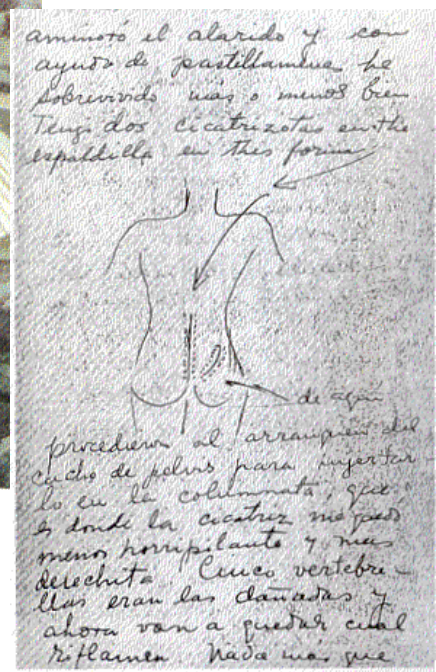 aminoró el alarido y con
ayuda de pastillamena he
sobrevivido más o menos bien
Tengo dos cicatrizotas en the
espaldilla en this forma
de aquí
procedieron al arranquen del
cacho de pelvis para injertar-
lo en la columnata, que
es donde la cicatriz me quedó
menos horripilante y más
derechita. Cinco vertebre-
llas eran las dañadas y
ahora van a quedar cual
riflamen. Nada más que